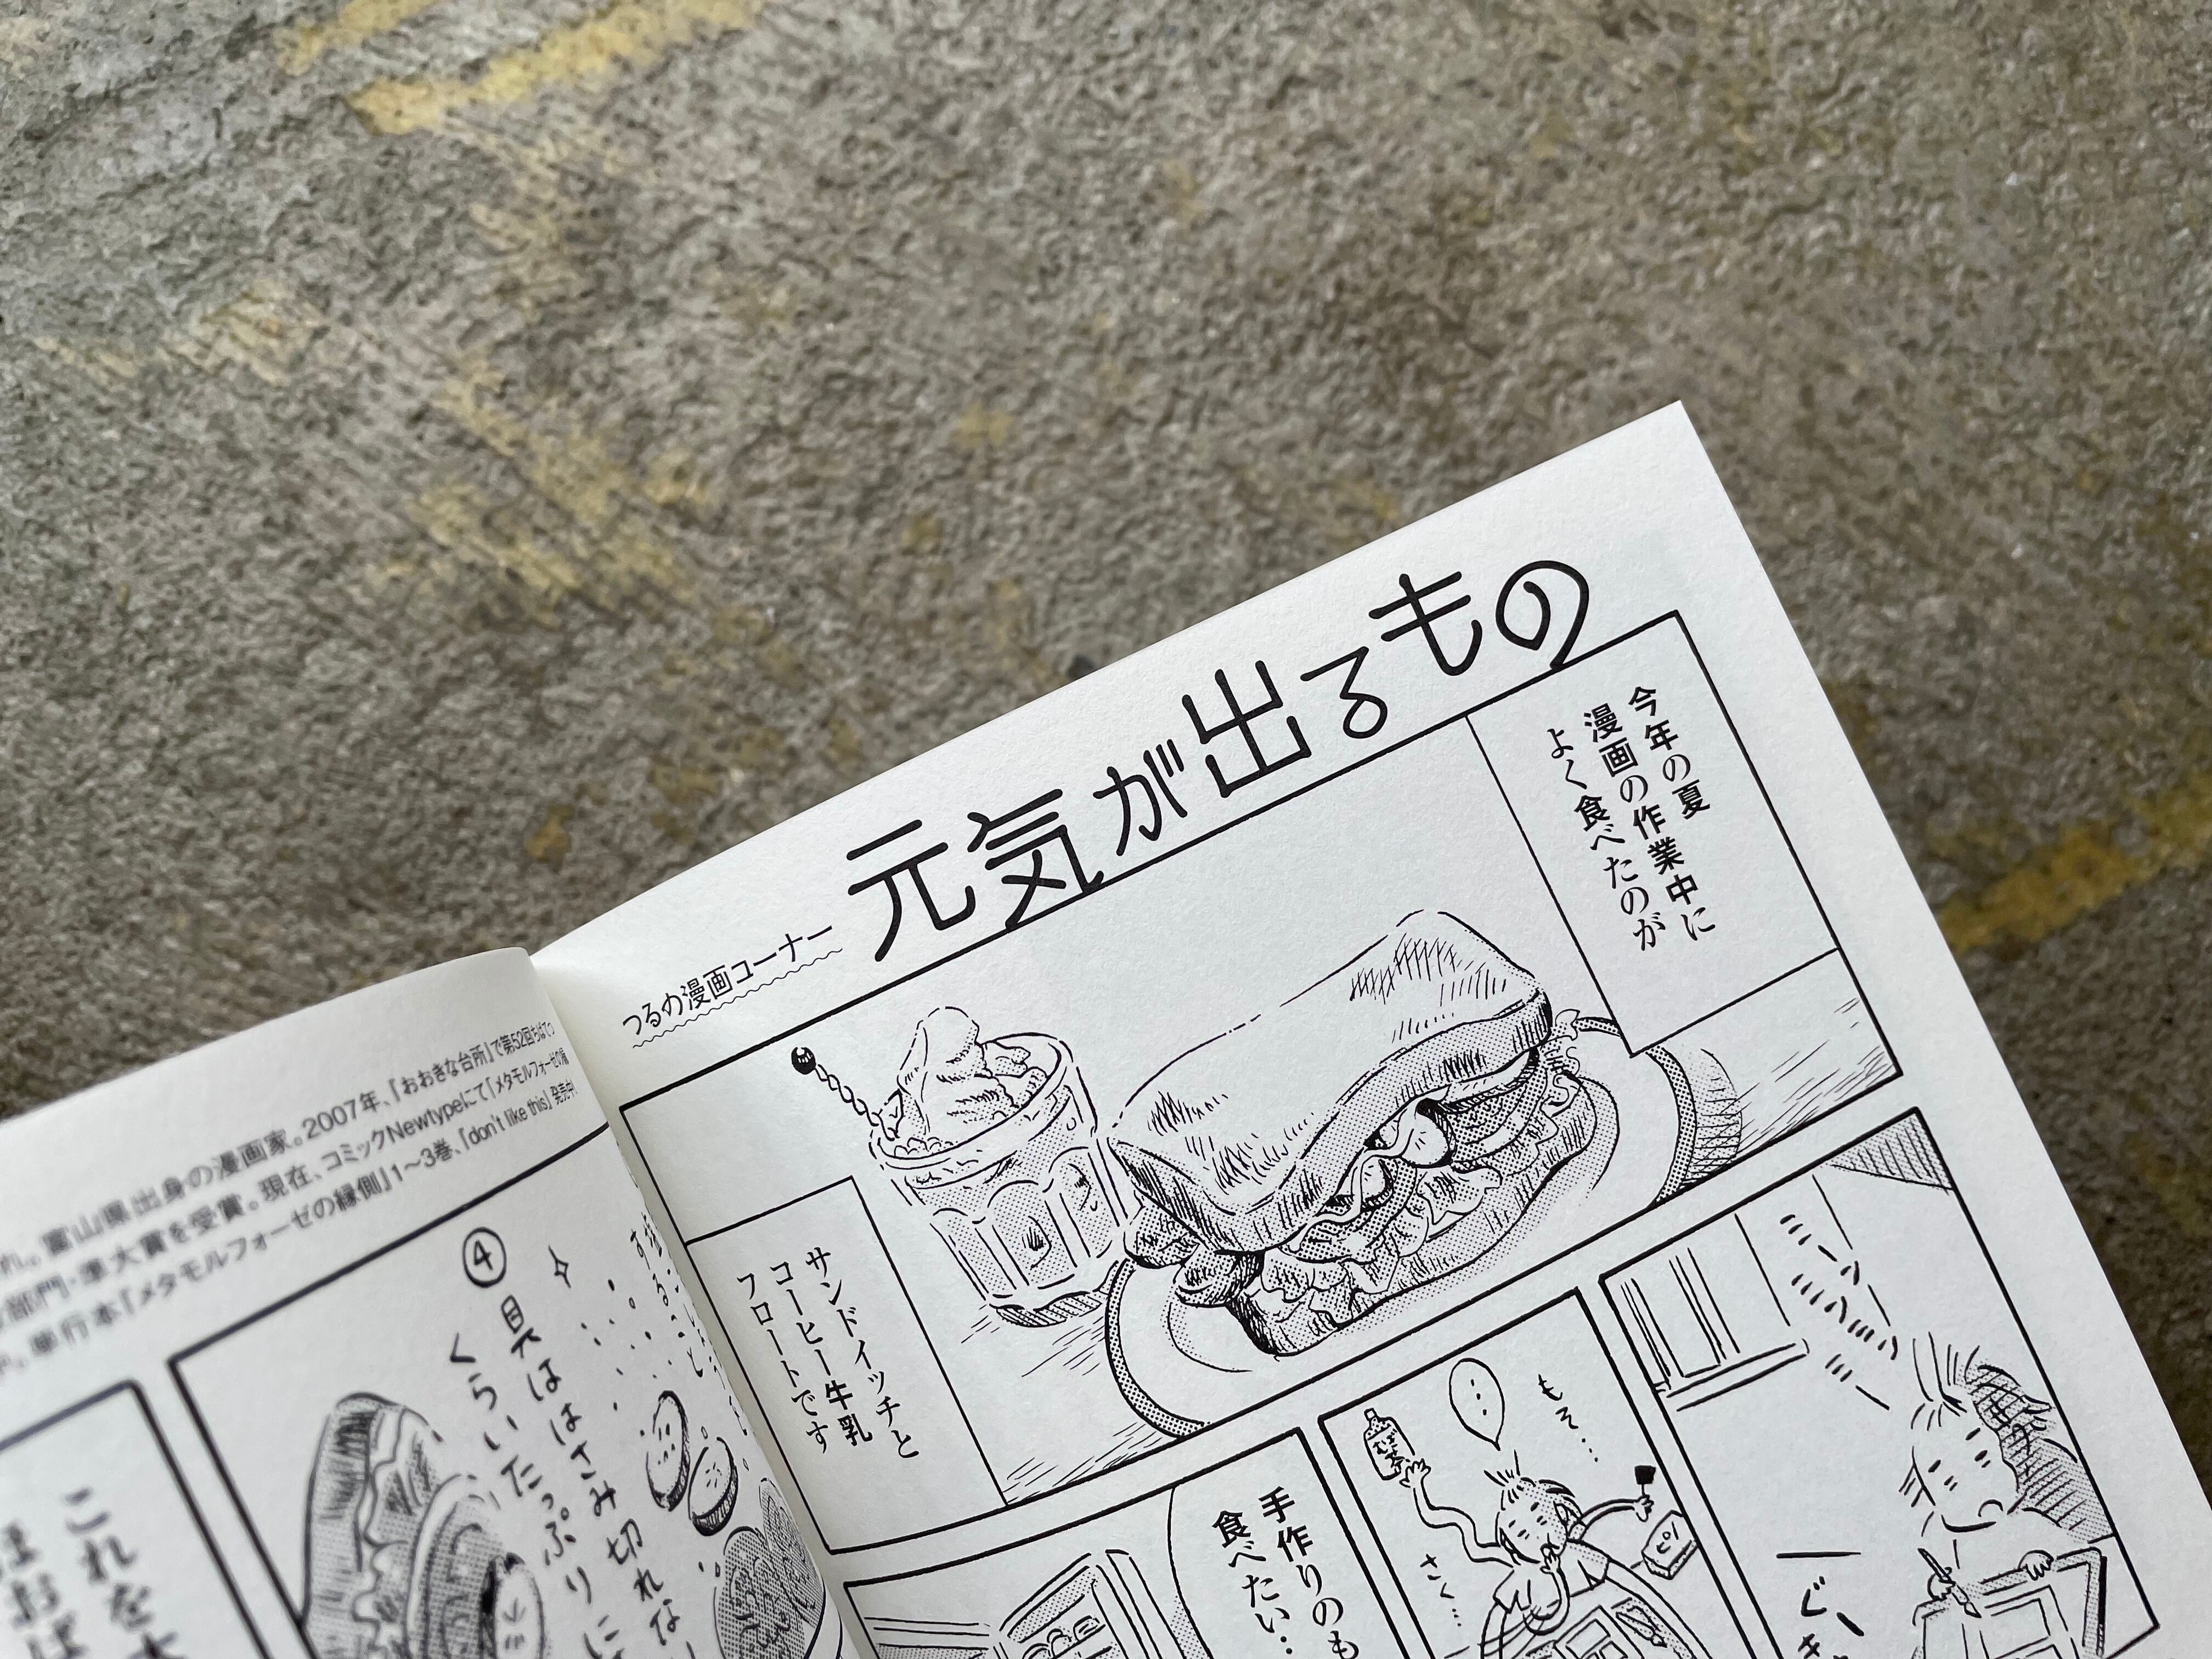 つるの漫画コーナー
元気が出るもの
今年の夏
漫画の作業中に
よく食べたのが
サンドイッチと
コーヒー牛乳
フロートです
ミーン
ミンミン
ミー
もそ…
…
むぎ茶
さく…
手作りのも
食べたい…
富山県出身の漫画家。2007年、『おおきな台所』で第52回ちばてつ
部門・準大賞を受賞。現在、コミックNewtypeにて『メタモルフォーゼの縁
単行本『メタモルフォーゼの縁側』1〜3巻、『don't like this』発売中!
④具ははさみ切れな
くらいたっぷりに
これを